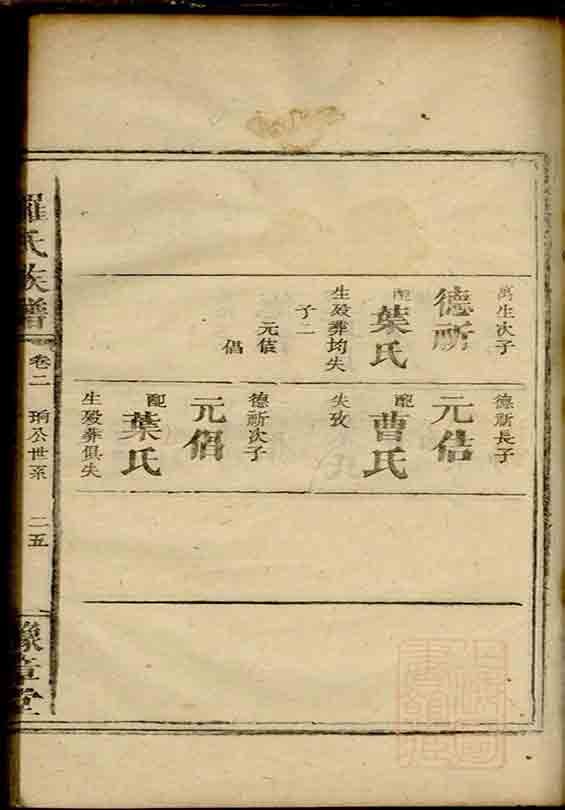 萬生次子
德祈
配
葉氏
生殁葬均失
子二
元佶
倡
德祈長子
元佶
配
曹氏
失攷
德祈次子
元倡
配
葉氏
生殁葬俱失
羅氏族譜
卷二
珦公世系
二五
豫章堂